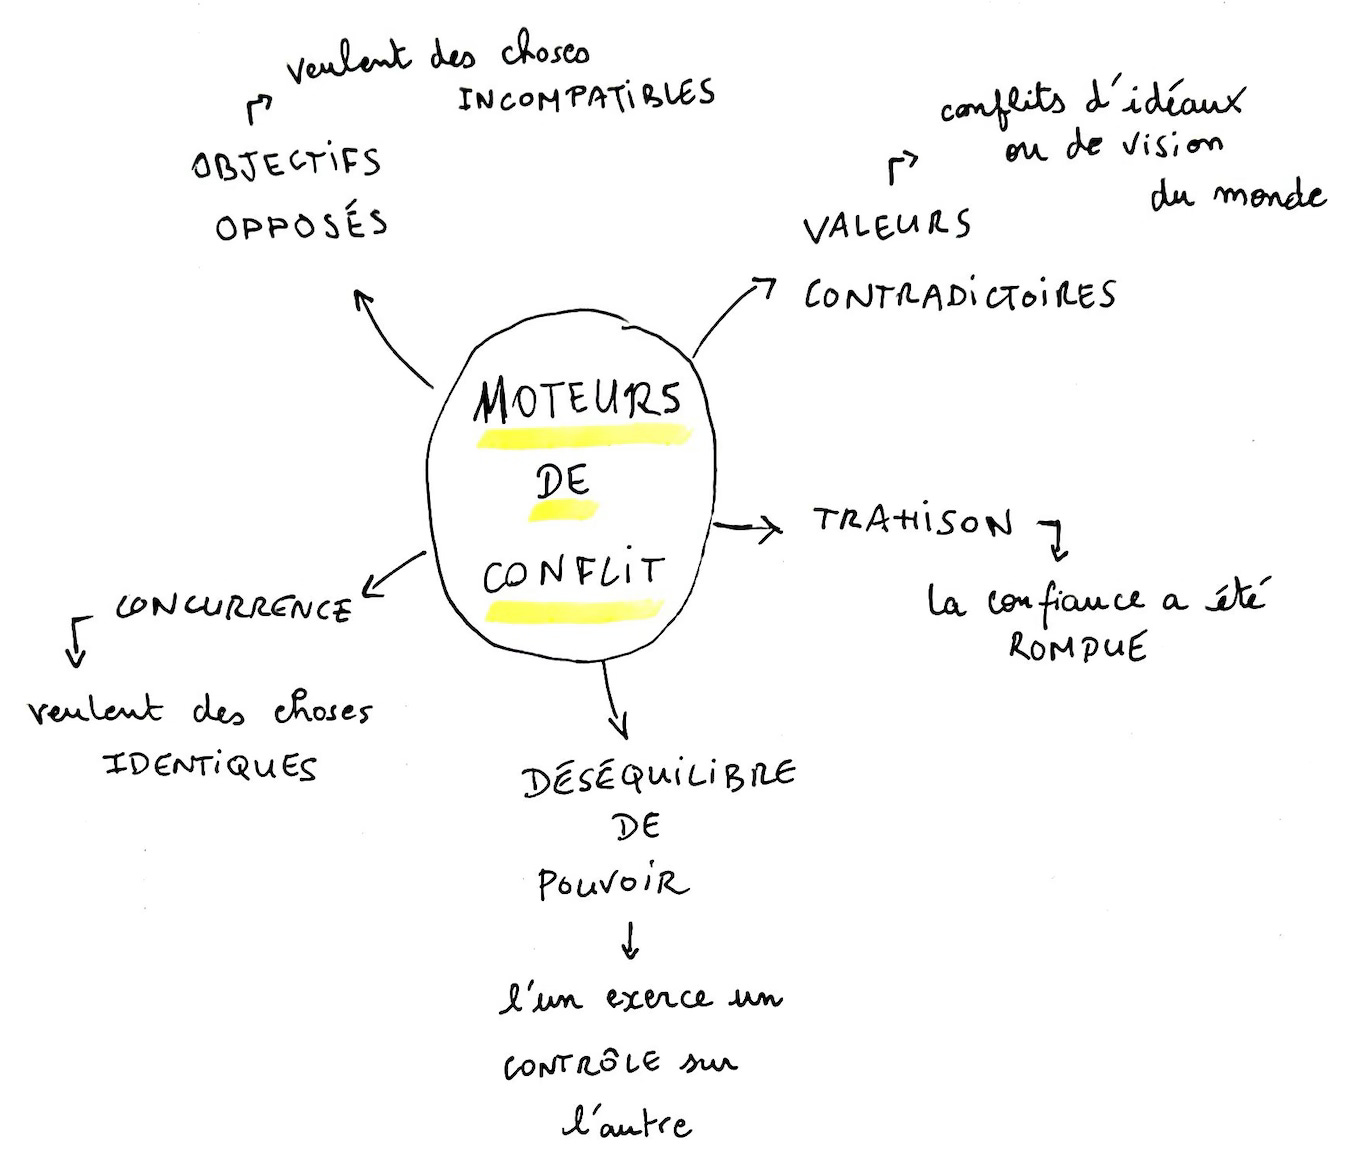 veulent des choses
INCOMPATIBLES
OBJECTIFS
OPPOSÉS
conflits d'idéaux
ou de vision
du monde
VALEURS
CONTRADICTOIRES
MOTEURS
DE
CONFLIT
TRAHISON
la confiance a été
ROMPUE
CONCURRENCE
veulent des choses
IDENTIQUES
DÉSÉQUILIBRE
DE
POUVOIR
l'un exerce un
CONTRÔLE sur
l'autre